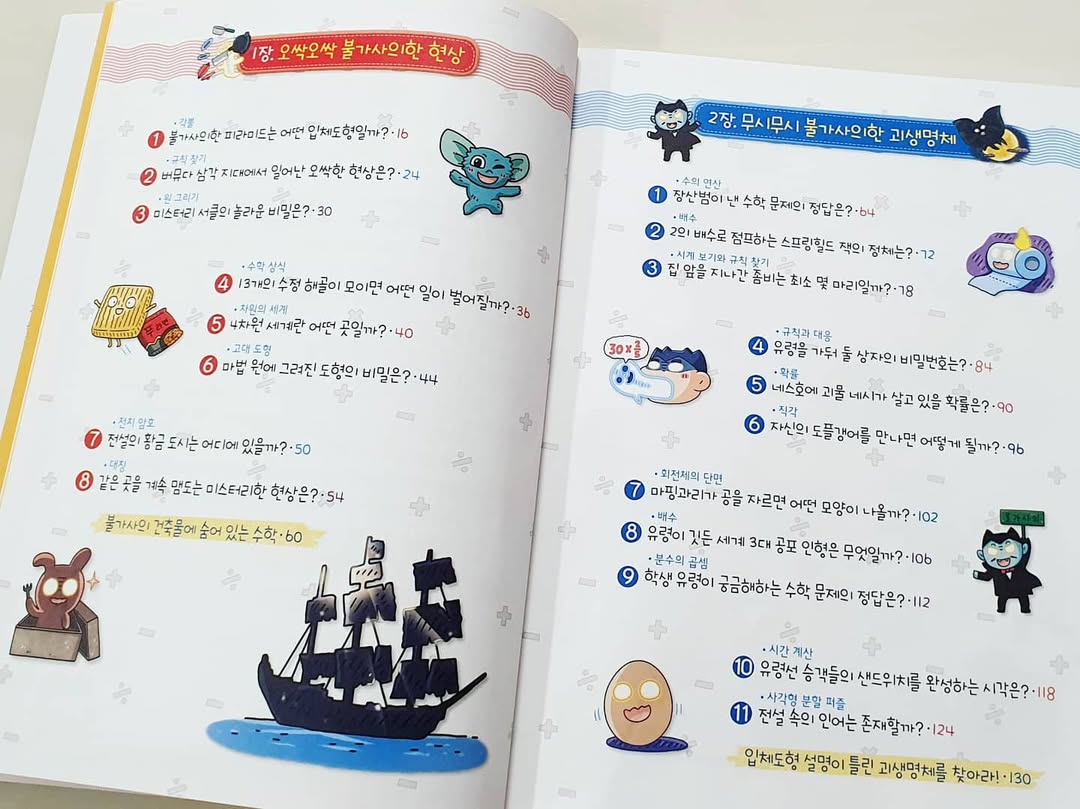 1장. 오싹오싹 불가사의한 현상
• 각뿔
1 불가사의한 피라미드는 어떤 입체도형일까? · 16
• 규칙 찾기
2 버뮤다 삼각 지대에서 일어난 오싹한 현상은? · 24
• 원 그리기
3 미스터리 서클의 놀라운 비밀은? · 30
• 수학 상식
4 13개의 수정 해골이 모이면 어떤 일이 벌어질까? · 36
• 차원의 세계
5 4차원 세계란 어떤 곳일까? · 40
• 고대 도형
6 마법 원에 그려진 도형의 비밀은? · 44
• 전치 암호
7 전설의 황금 도시는 어디에 있을까? · 50
• 대칭
8 같은 곳을 계속 맴도는 미스터리한 현상은? · 54
불가사의 건축물에 숨어 있는 수학 · 60
2장. 무시무시 불가사의한 괴생명체
• 수의 연산
1 장산범이 낸 수학 문제의 정답은? · 64
• 배수
2 2의 배수로 점프하는 스프링힐드 잭의 정체는? · 72
• 시계 보기와 규칙 찾기
3 집 앞을 지나간 좀비는 최소 몇 마리일까? · 78
30 × 2/5
• 규칙과 대응
4 유령을 가둬 둘 상자의 비밀번호는? · 84
• 확률
5 네스호에 괴물 네시가 살고 있을 확률은? · 90
• 직각
6 자신의 도플갱어를 만나면 어떻게 될까? · 96
• 회전체의 단면
7 마핑과리가 공을 자르면 어떤 모양이 나올까? · 102
• 배수
8 유령이 깃든 세계 3대 공포 인형은 무엇일까? · 106
불가사의
• 분수의 곱셈
9 학생 유령이 궁금해하는 수학 문제의 정답은? · 112
• 시간 계산
10 유령선 승객들의 샌드위치를 완성하는 시각은? · 118
• 사각형 분할 퍼즐
11 전설 속의 인어는 존재할까? · 124
입체도형 설명이 틀린 괴생명체를 찾아라! · 130